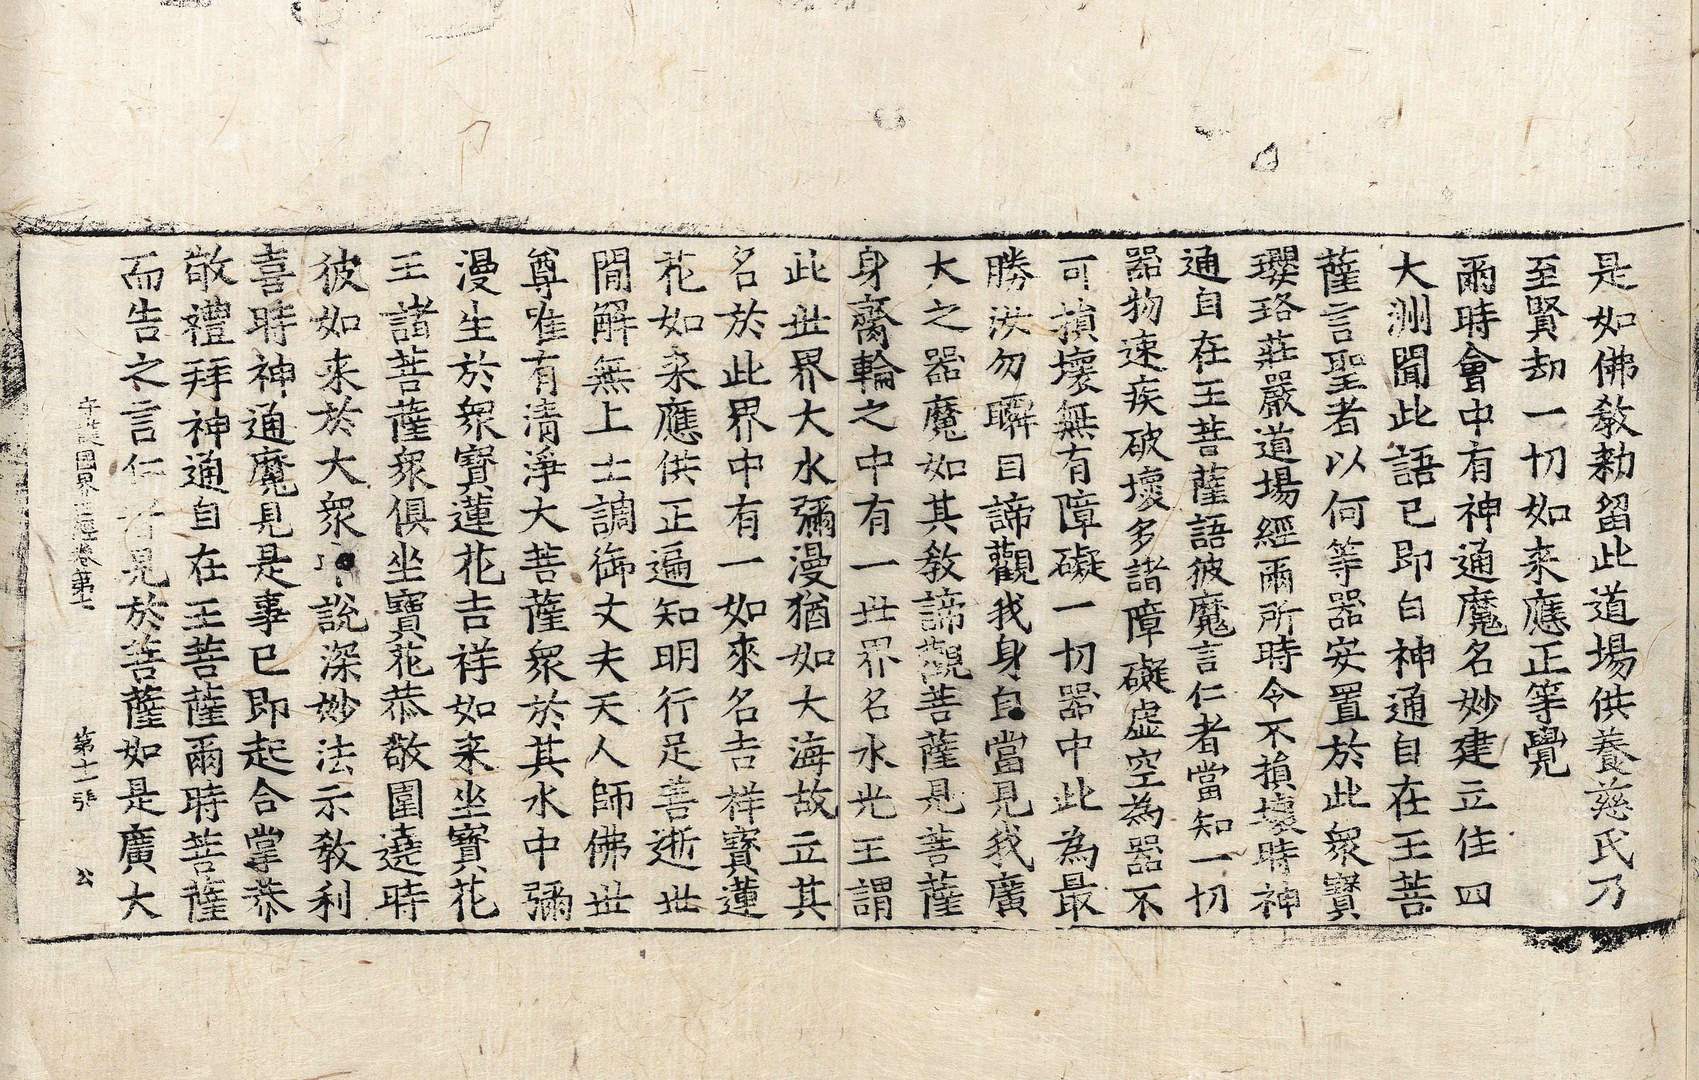 是如佛教勑留此道場供養慈氏乃
至賢劫一切如来應正等覺
爾時會中有神通魔名妙建立住四
大洲聞此語已即白神通自在王菩
薩言聖者以何等器安置於此衆寶
瓔珞莊嚴道場經爾所時令不損壞時神
通自在王菩薩語彼魔言仁者當知一切
器物速疾破壞多諸障礙虛空為器不
可損壞無有障礙一切器中此為最
勝汝勿瞬目諦觀我身自當見我廣
大之器魔如其教諦觀菩薩見菩薩
身齎輪之中有一世界名水光王謂
此世界大水彌漫猶如大海故立其
名於此界中有一如來名吉祥寶蓮
花如来應供正遍知明行足善逝世
間解無上士調御丈夫天人師佛世
尊唯有清淨大菩薩衆於其水中彌
漫生於衆寶蓮花吉祥如来坐寶花
王諸菩薩衆俱坐寶花恭敬圍遶時
彼如来於大衆中說深妙法示教利
喜時神通魔見是事已即起合掌恭
敬禮拜神通自在王菩薩爾時菩薩
而告之言仁者見於菩薩如是廣大
國界主經卷第七 第十一張 公